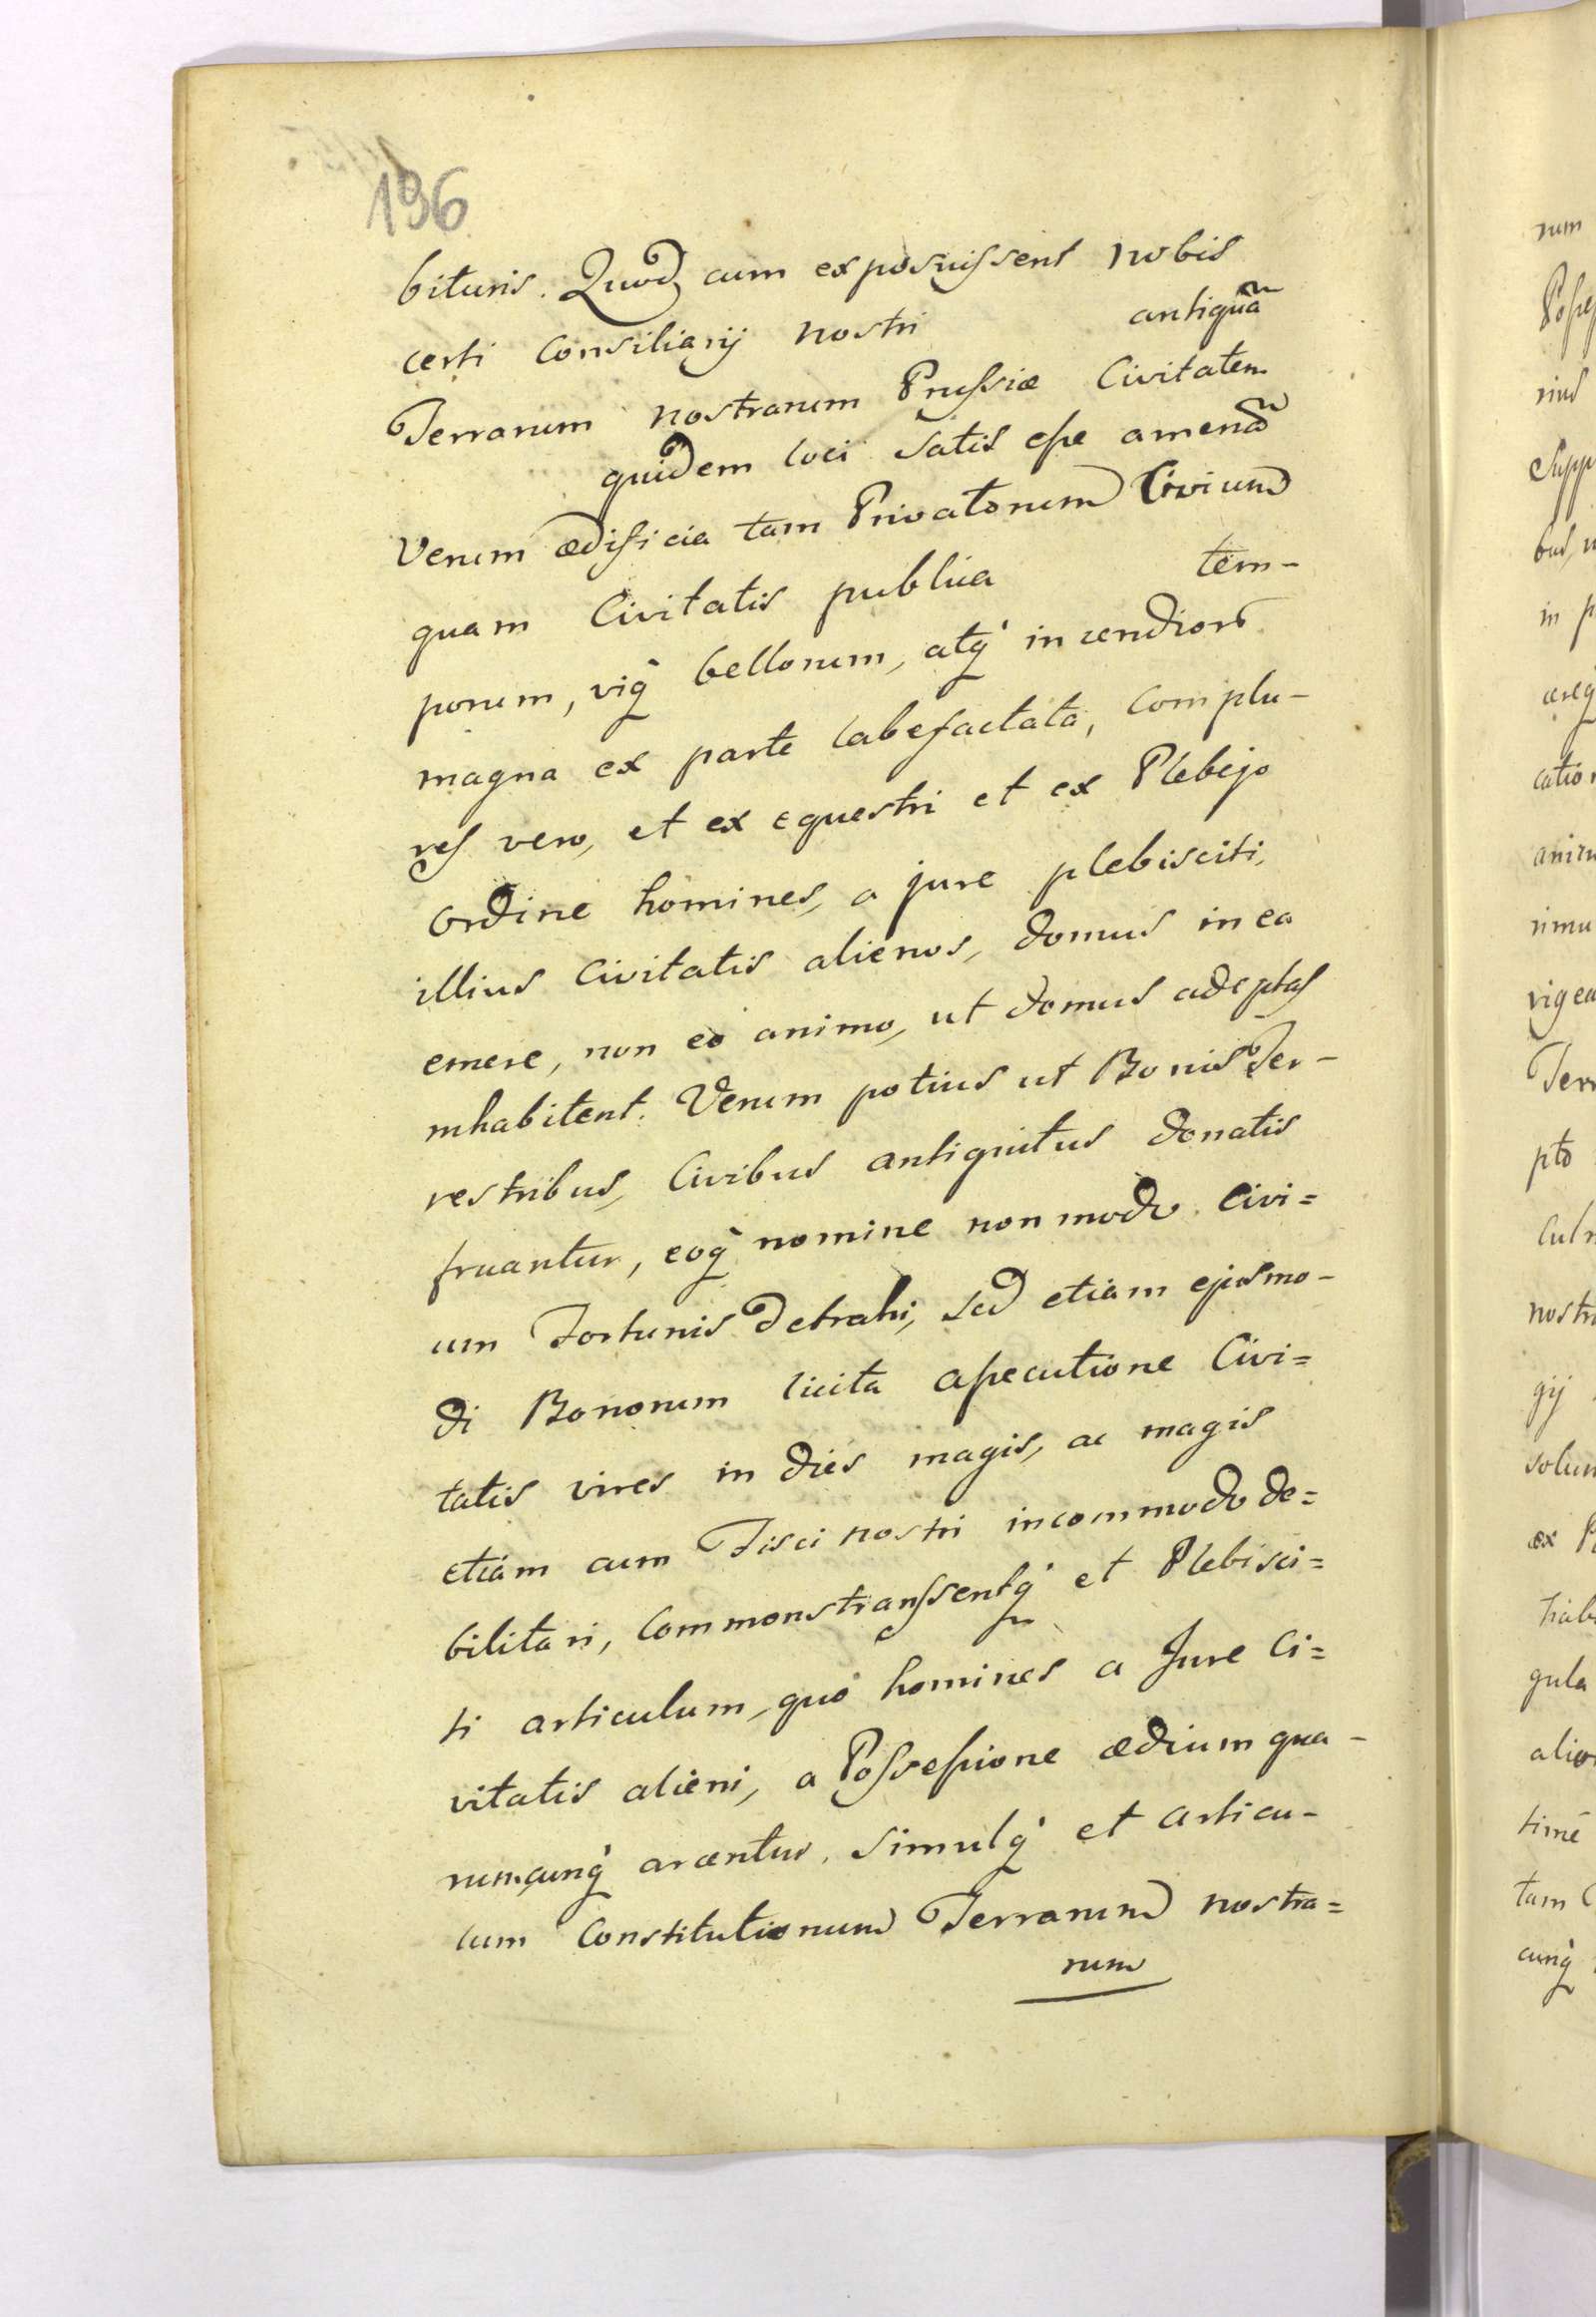 196
bituris. Quod cum exposuissent nobis
certi Consiliarij nostri antiquã
Terrarum nostrarum Prussiæ Civitatem
quidem loci satis esse amenõ
Verum ædificia tam Privatorum Civium
quam Civitatis publica tem-
porum, viq̀ bellorum, atq̀ incendiorũ
magna ex parte labefactata, Complu-
res vero, et ex equestri et ex Plebejo
Ordine homines, a jure plebisciti,
illius Civitatis alienos, domus in ea
emere, non eò animo, ut domus adeptas
inhabitent. Verum potius ut Bonis Ter-
restribus, Civibus antiquitus donatis
fruantur, eoq̀ nomine non modo Civi=
um Fortunis detrahi, sed etiam ejusmo-
di Bonorum licita assecutione Civi=
tatis vires in dies magis, ac magis
etiam cum Fisci nostri incommodo de=
bilitari, Commonstranssentq̀ et Plebisci=
ti articulum, quo homines a Jure Ci=
vitatis alieni, a Possessione ædium qua-
rumcunq̀ arcentur, simulq̀ et articu-
lum Constitutionum Terrarum nostra=
rum
num
rius
Supp
bus, u
in p
catio
vigea
Terr
pto
Cul
nostr
gij
solum
ex P
hab
gula
alio
time
tam C
cunq̀